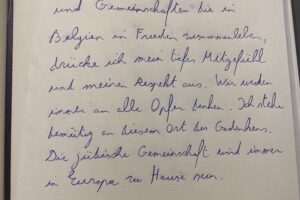 und Gemeinschaften die in
Belgien in Frieden zusammenleben,
drücke ich mein tiefes Mitgefühl
und meinen Respekt aus. Wir werden
immer an alle Opfer denken. Ich stehe
demütig an diesem Ort des Gedenkens.
Die jüdische Gemeinschaft wird immer
in Europa zu Hause sein.